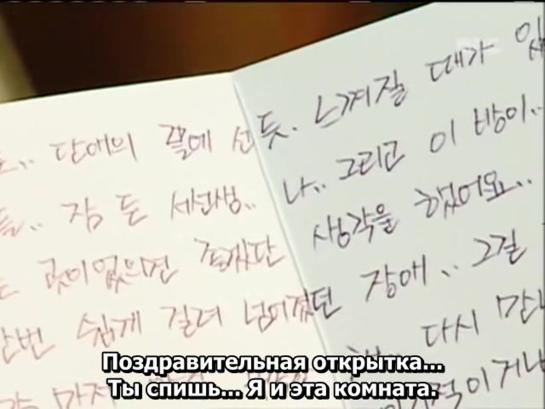 단애의 끝에 선 듯. 느껴질 때가
잠 든 세선생.. 나.. 그리고 이 방이..
곳이 없으면 좋겠단 생각을 했어요..
쉽게 걸려 넘어졌던 장애.. 그걸
다시
Поздравительная открытка...
Ты спишь... Я и эта комната.